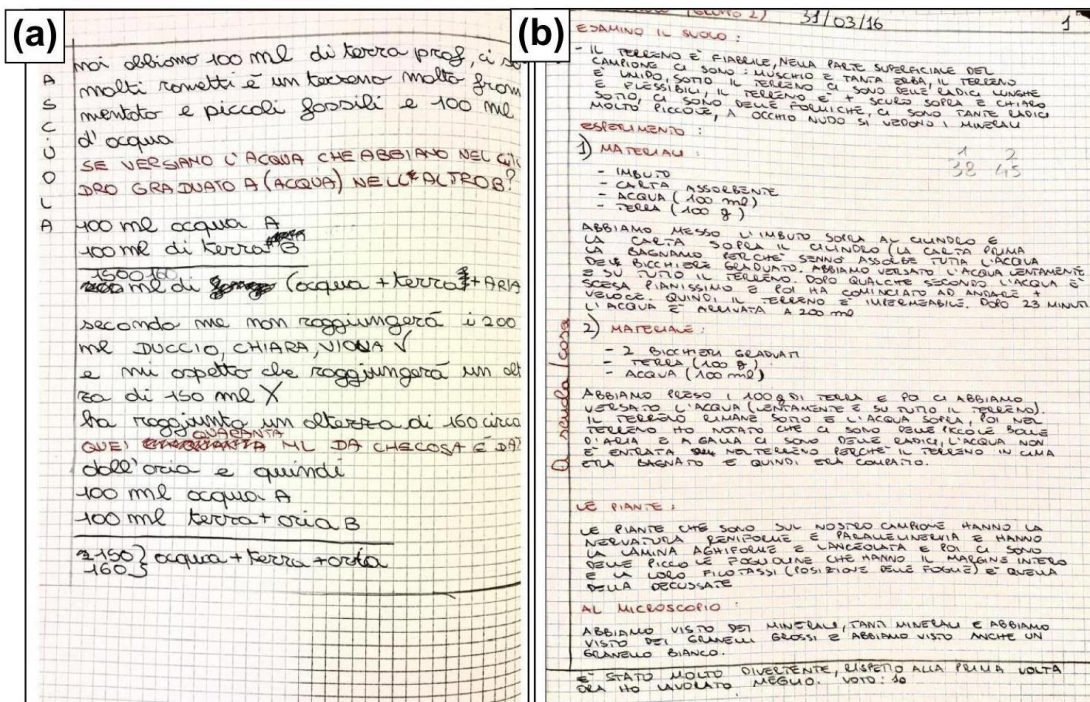 (a)
A SCUOLA
noi abbiamo 100 ml di terra prof, ci so
molti rametti è un terreno molto fram
mentato e piccoli fossili e 100 ml
d'acqua
SE VERSIAMO L'ACQUA CHE ABBIAMO NEL CILI
DRO GRADUATO A (ACQUA) NELL'ALTRO B?
100 ml acqua A
100 ml di terra B
150 o 160
ml di (acqua + terra + ARIA
secondo me non raggiungerá i 200
ml DUCCIO, CHIARA, VIOLA √
e mi aspetto che raggiungerá un alt
za di 150 ml X
ha raggiunto un altezza di 160 circa
QUARANTA
QUEI ML DA CHE COSA É DA
dall'aria e quindi
100 ml acqua A
100 ml terra + aria B
150 } acqua + terra + aria
160
(b)
(GRUPPO 2) 31/03/16 1
ESAMINO IL SUOLO:
- IL TERRENO È FIABRILE, NELLA PARTE SUPERFICIALE DEL
CAMPIONE CI SONO: MUSCHIO E TANTA ERBA, IL TERRENO
È UMIDO, SOTTO IL TERRENO CI SONO DELLE RADICI LUNGHE
E FLESSIBILI, IL TERRENO È + SCURO SOPRA E CHIARO
SOTTO, CI SONO DELLE FORMICHE, CI SONO TANTE RADICI
MOLTO PICCOLE, A OCCHIO NUDO SI VEDONO I MINERALI
ESPERIMENTO:
1) MATERIALI:
1 2
38 45
- IMBUTO
- CARTA ASSORBENTE
- ACQUA (100 ml)
- TERRA (100 g)
ABBIAMO MESSO L'IMBUTO SOPRA AL CILINDRO E
LA CARTA SOPRA IL CILINDRO (LA CARTA PRIMA
LA BAGNAMO PERCHÉ SENNÒ ASSORBE TUTTA L'ACQUA
DEL BICCHIERE GRADUATO. ABBIAMO VERSATO L'ACQUA LENTAMENTE
E SU TUTTO IL TERRENO. DOPO QUALCHE SECONDO L'ACQUA È
SCESA PIANISSIMO E POI HA COMINCIATO AD ANDARE +
VELOCE. QUINDI IL TERRENO È IMPERMEABILE. DOPO 23 MINUTI
L'ACQUA È ARRIVATA A 200 ml
A scuola / casa
2) MATERIALE:
- 2 BICCHIERI GRADUATI
- TERRA (100 g)
- ACQUA (100 ml)
ABBIAMO PRESO I 100 g DI TERRA E POI CI ABBIAMO
VERSATO L'ACQUA (LENTAMENTE E SU TUTTO IL TERRENO).
IL TERRENO RIMANE SOTTO E L'ACQUA SOPRA, POI NEL
TERRENO HO NOTATO CHE CI SONO DELLE PICCOLE BOLLE
D'ARIA E A GALLA CI SONO DELLE RADICI, L'ACQUA NON
È ENTRATA NEL TERRENO PERCHÉ IL TERRENO IN CIMA
ERA BAGNATO E QUINDI ERA COMPATTO.
LE PIANTE:
LE PIANTE CHE SONO SUL NOSTRO CAMPIONE HANNO LA
NERVATURA RENIFORME E PARALLELINERVIA E HANNO
LA LAMINA AGHIFORME E LANCEOLATA E POI CI SONO
DELLE PICCOLE FOGLIOLINE CHE HANNO IL MARGINE INTERO
E LA LORO FILLOTASSI (POSIZIONE DELLE FOGLIE) È QUELLA
DELLA DECUSSATE
AL MICROSCOPIO:
ABBIAMO VISTO DEI MINERALI, TANTI MINERALI E ABBIAMO
VISTO DEI GRANELLI GROSSI E ABBIAMO VISTO ANCHE UN
GRANELLO BIANCO.
E' STATO MOLTO DIVERTENTE, RISPETTO ALLA PRIMA VOLTA
ORA HO LAVORATO MEGLIO. VOTO: 10